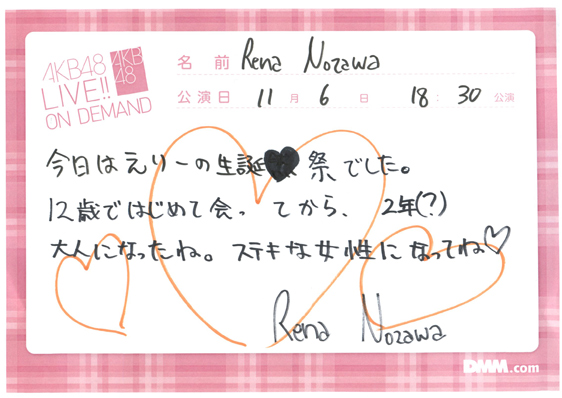 AKB48
LIVE!!
ON DEMAND
AKB
48
名前 Rena Nozawa
公演日 11月6日 18:30公演
今日はえりーの生誕祭でした。
12歳ではじめて会ってから、2年(?)
大人になったね。ステキな女性になってね♡
Rena Nozawa
DMM.com